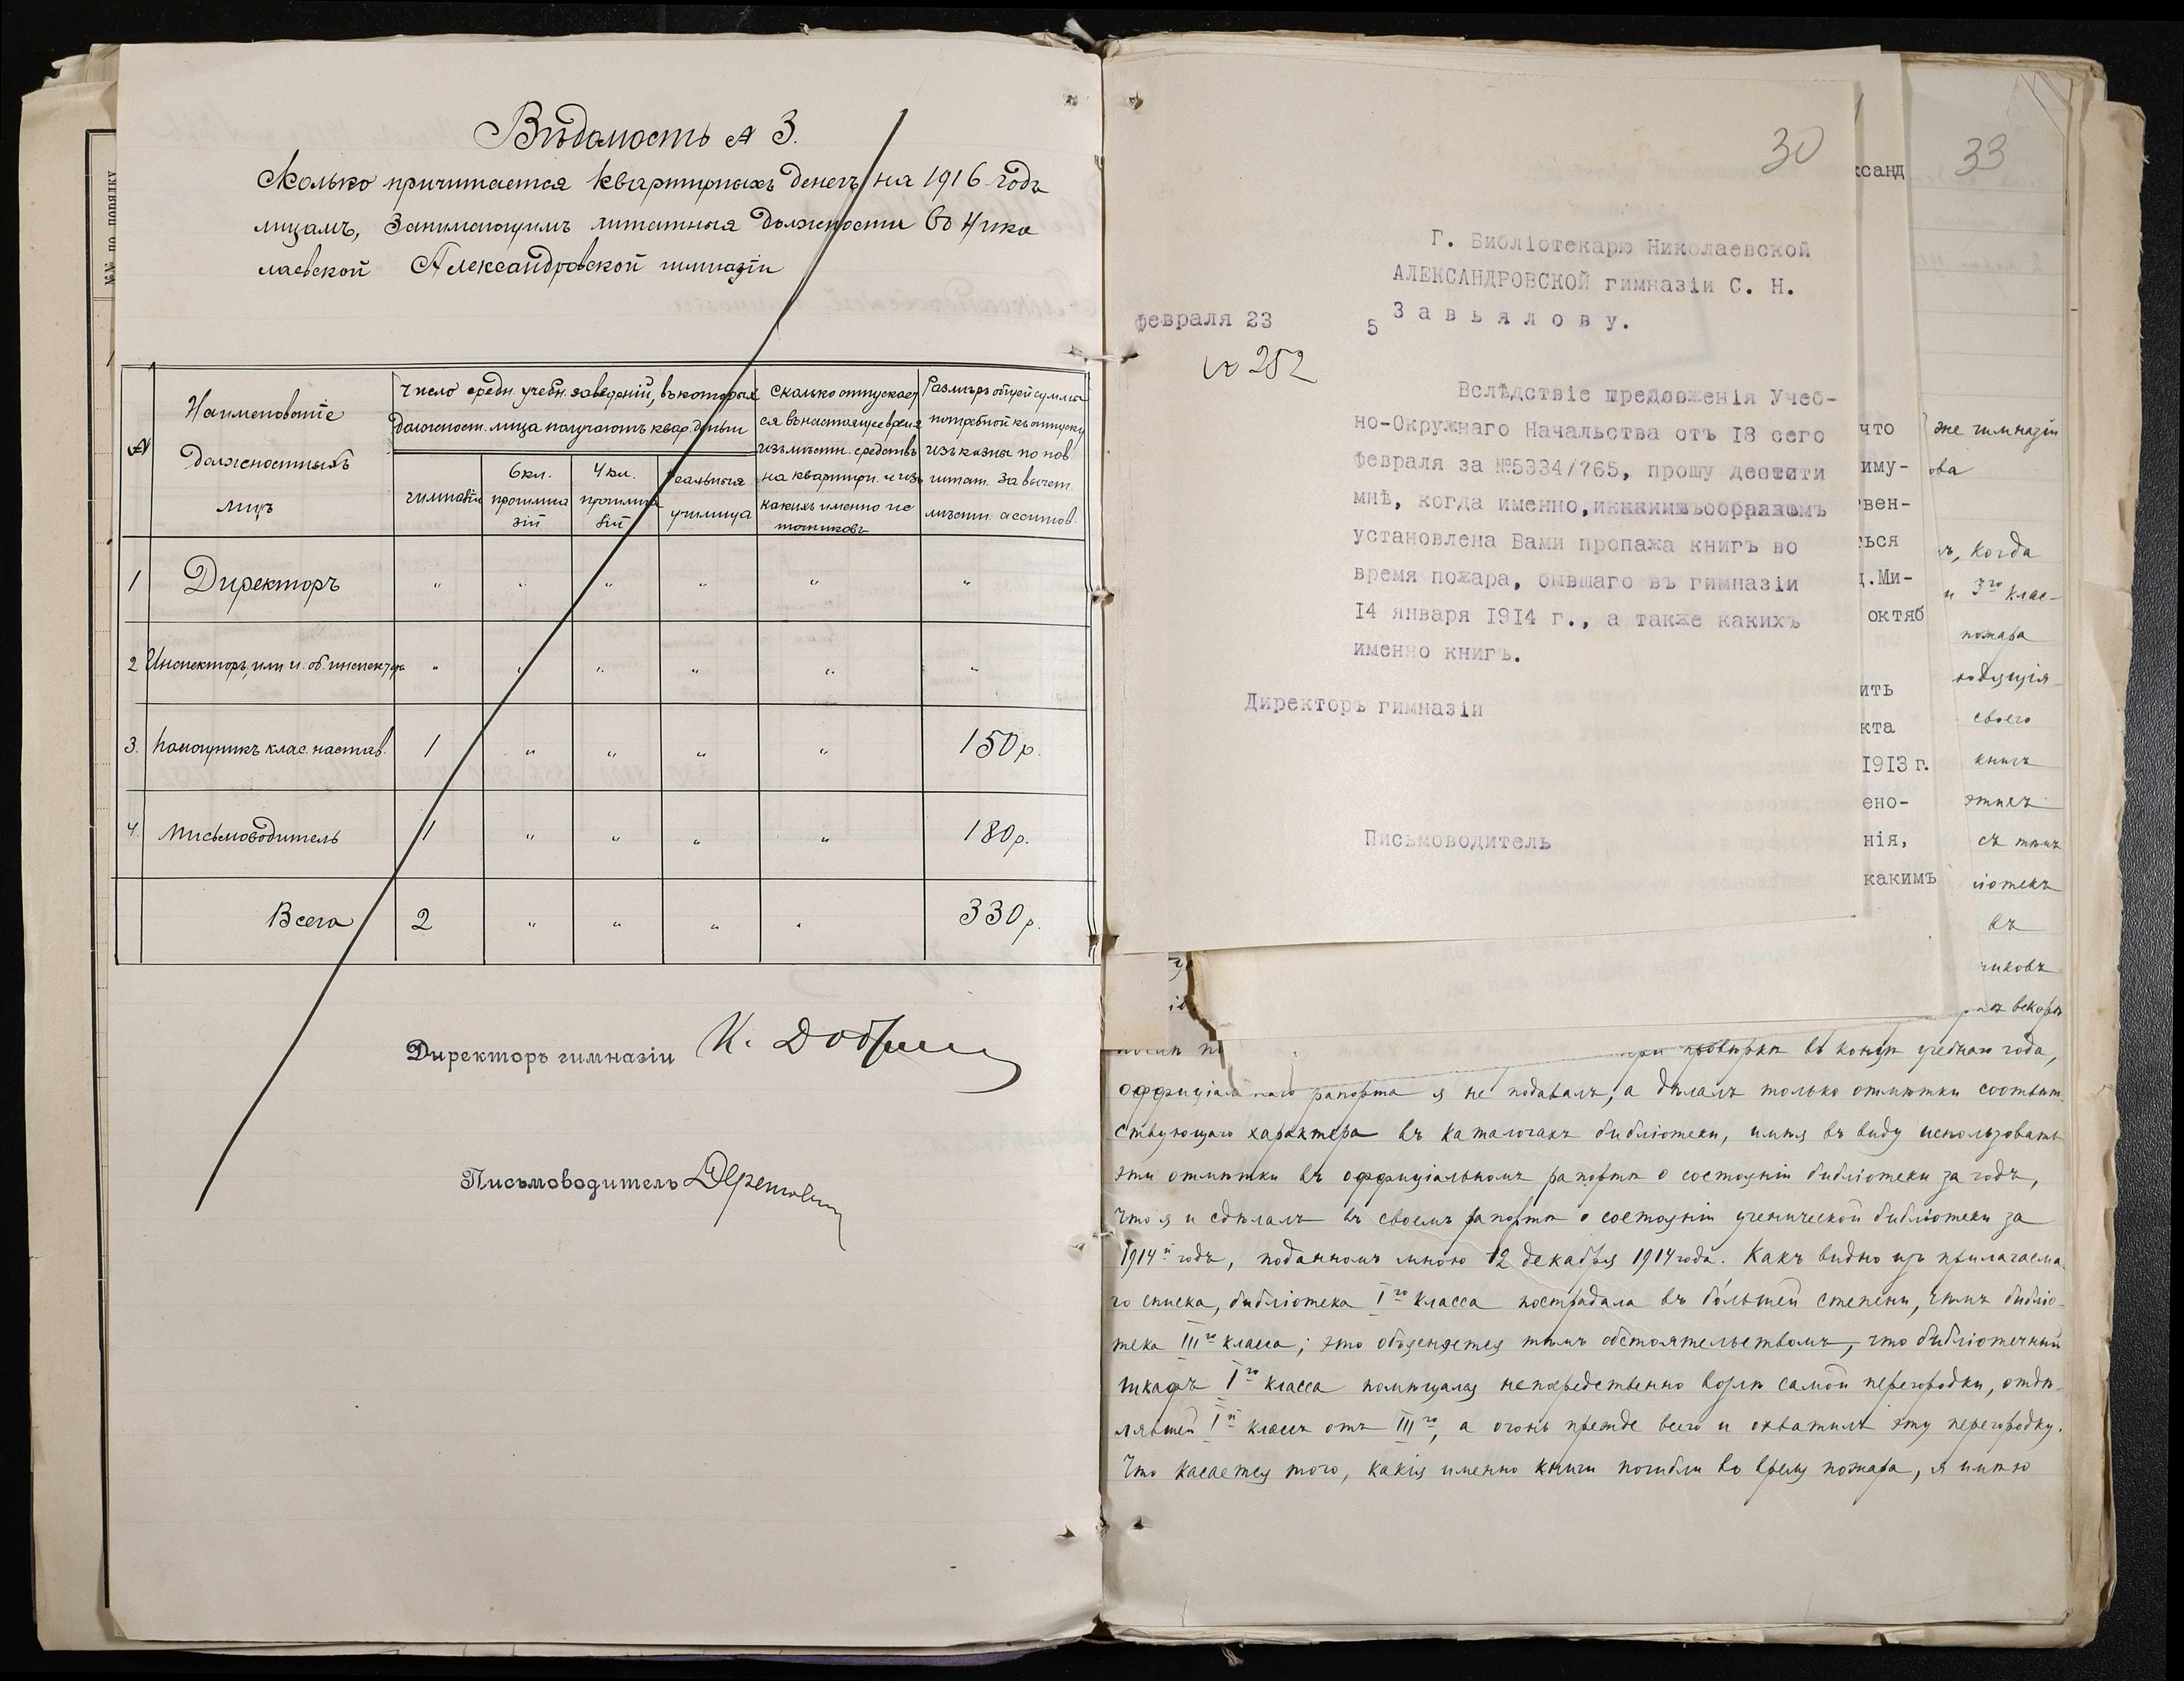 Вѣдомость № 3.
Сколько причитается квартирныхъ денегъ на 1916 годъ
лицамъ, занимающимъ штатныя должности въ Нико
лаевской Александровской гимназіи
№№ по порядку
№
Наименованіе
должностныхъ
лицъ
Число средн. учебн. заведеній, въ которыхъ
должност. лица получаютъ квар. деньги
гимназіи
6 кл.
прогимна
зій
4 кл.
прогимна
зій
реальныя
училища
Сколько отпускает
ся въ настоящее время
изъ мѣстн. средствъ
на квартирн. и изъ
какихъ именно ис
точниковъ
Размѣръ общей суммы
потребной къ отпуску
изъ казны по нов.
штат. за вычет.
мѣстн. ассигнов.
1 Директоръ " " " " " "
2 Инспекторъ, или и. об. инспектора " " " " " "
3. Помощникъ клас. настав. 1 " " " " 150 р.
4. Письмоводитель 1 " " " " 180 р.
Всего 2 " " " " 330 р.
Директоръ гимназіи
Письмоводитель
30
Г. Библіотекарю Николаевской
АЛЕКСАНДРОВСКОЙ гимназіи С. Н.
Завьялову.
февраля 23 5
№ 252
Вслѣдствіе предложенія Учеб-
но-Окружнаго Начальства отъ 18 сего
февраля за №5334/765, прошу
мнѣ, когда именно, и какимъ образомъ
установлена Вами пропажа книгъ во
время пожара, бывшаго въ гимназіи
14 января 1914 г., а также какихъ
именно книгъ.
Директоръ гимназіи
Письмоводитель
ксанд
что
иму-
вен-
ься
.Ми-
октяб
ить
кта
1913 г.
ено-
нія,
какимъ
33
же гимназіи
ова
ъ, когда
и 3го клас-
пожара
своего
книгъ
этихъ
съ тѣмъ
іотекъ
въ
никовъ
вскорѣ
при провѣркѣ въ концѣ учебнаго года,
оффиціальнаго рапорта я не подавалъ, а дѣлалъ только отмѣтки соотвѣт-
ствующаго характера въ каталогахъ библіотеки, имѣя въ виду использовать
эти отмѣтки въ оффиціальномъ рапортѣ о состояніи библіотеки за годъ,
что я и сдѣлалъ въ своемъ рапортѣ о состояніи ученической библіотеки за
1914й годъ, поданномъ мною 12 декабря 1914 года. Какъ видно изъ прилагаема-
го списка, библіотека Iго класса пострадала въ бо́льшей степени, чѣмъ библіо-
тека IIIго класса; это объясняется тѣмъ обстоятельствомъ, что библіотечный
шкафъ Iго класса помѣщался непосредственно возлѣ самой перегородки, отдѣ-
лявшей Iй классъ отъ IIIго, а огонь прежде всего и охватилъ эту перегородку.
Что касается того, какія именно книги погибли во время пожара, я имѣю